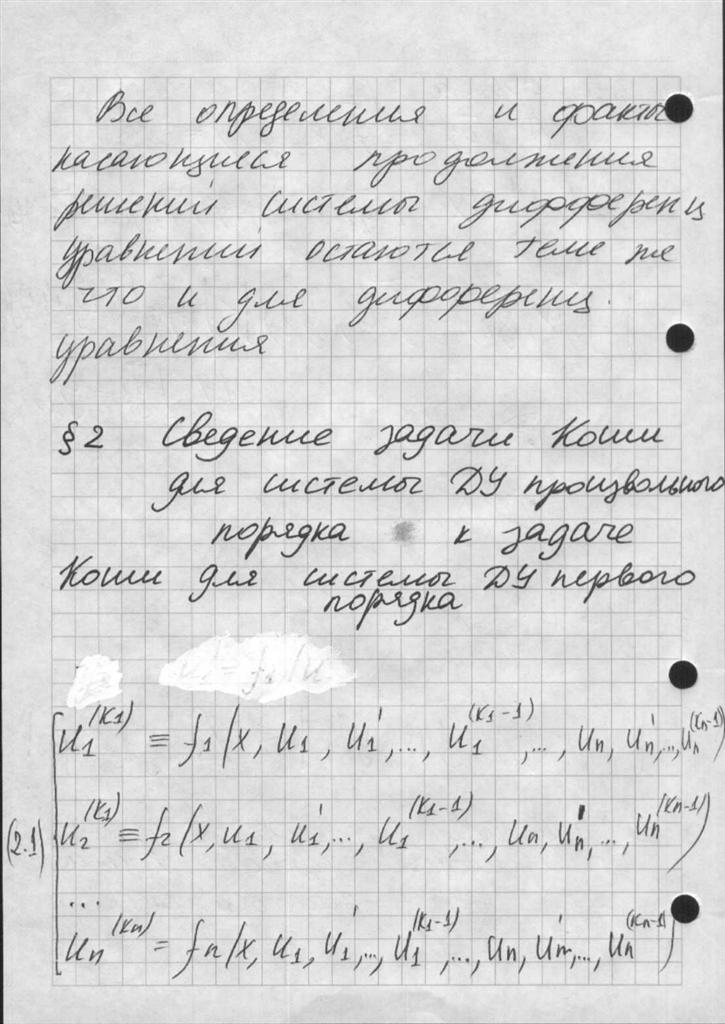 Все определения и факты
касающиеся продолжения
решений системы дифференц
уравнений остаются теме же
что и для дифференц.
уравнения
§2 Сведение задачи Коши
для системы ДУ произвольного
порядка к задаче
Коши для системы ДУ первого
порядка
u₁^(k₁) ≡ f₁(x, u₁, u₁', ..., u₁^(k₁-1), ..., uₙ, uₙ', ..., uₙ^(kₙ-1))
(2.1) u₂^(k₁) ≡ f₂(x, u₁, u₁', ..., u₁^(k₁-1), ..., uₙ, uₙ', ..., uₙ^(kₙ-1))
...
uₙ^(kₙ) = fₙ(x, u₁, u₁', ..., u₁^(k₁-1), ..., uₙ, uₘ', ..., uₙ^(kₙ-1))